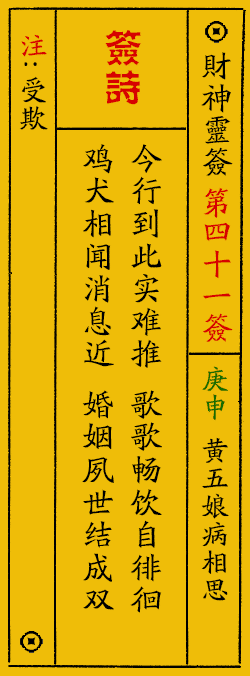 財神靈簽 第四十一簽
庚申 黄五娘病相思
簽詩
今行到此实难推 歌歌畅饮自徘徊
鸡犬相闻消息近 婚姻夙世结成双
注:受欺